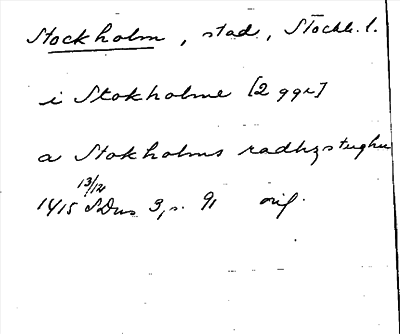 Stockholm, stad, Stockh. l.
i Stokholme [2 ggr]
a Stokholms radhzstughu
1415 13/12 SDns 3, s. 91 orig.